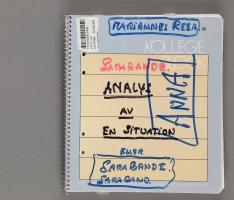 MARIANNES RESA.
KOLLEGIE
BLOCK
SARABANDE.
ANALYS
AV
EN SITUATION
ELLER
SARABANDE.
SARABAND.
ANNA